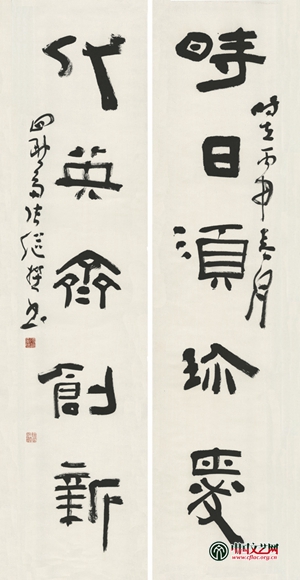 時日須珍愛
时在丙申春月
代英齊創新
书
中国文艺网
www.cflac.org.cn